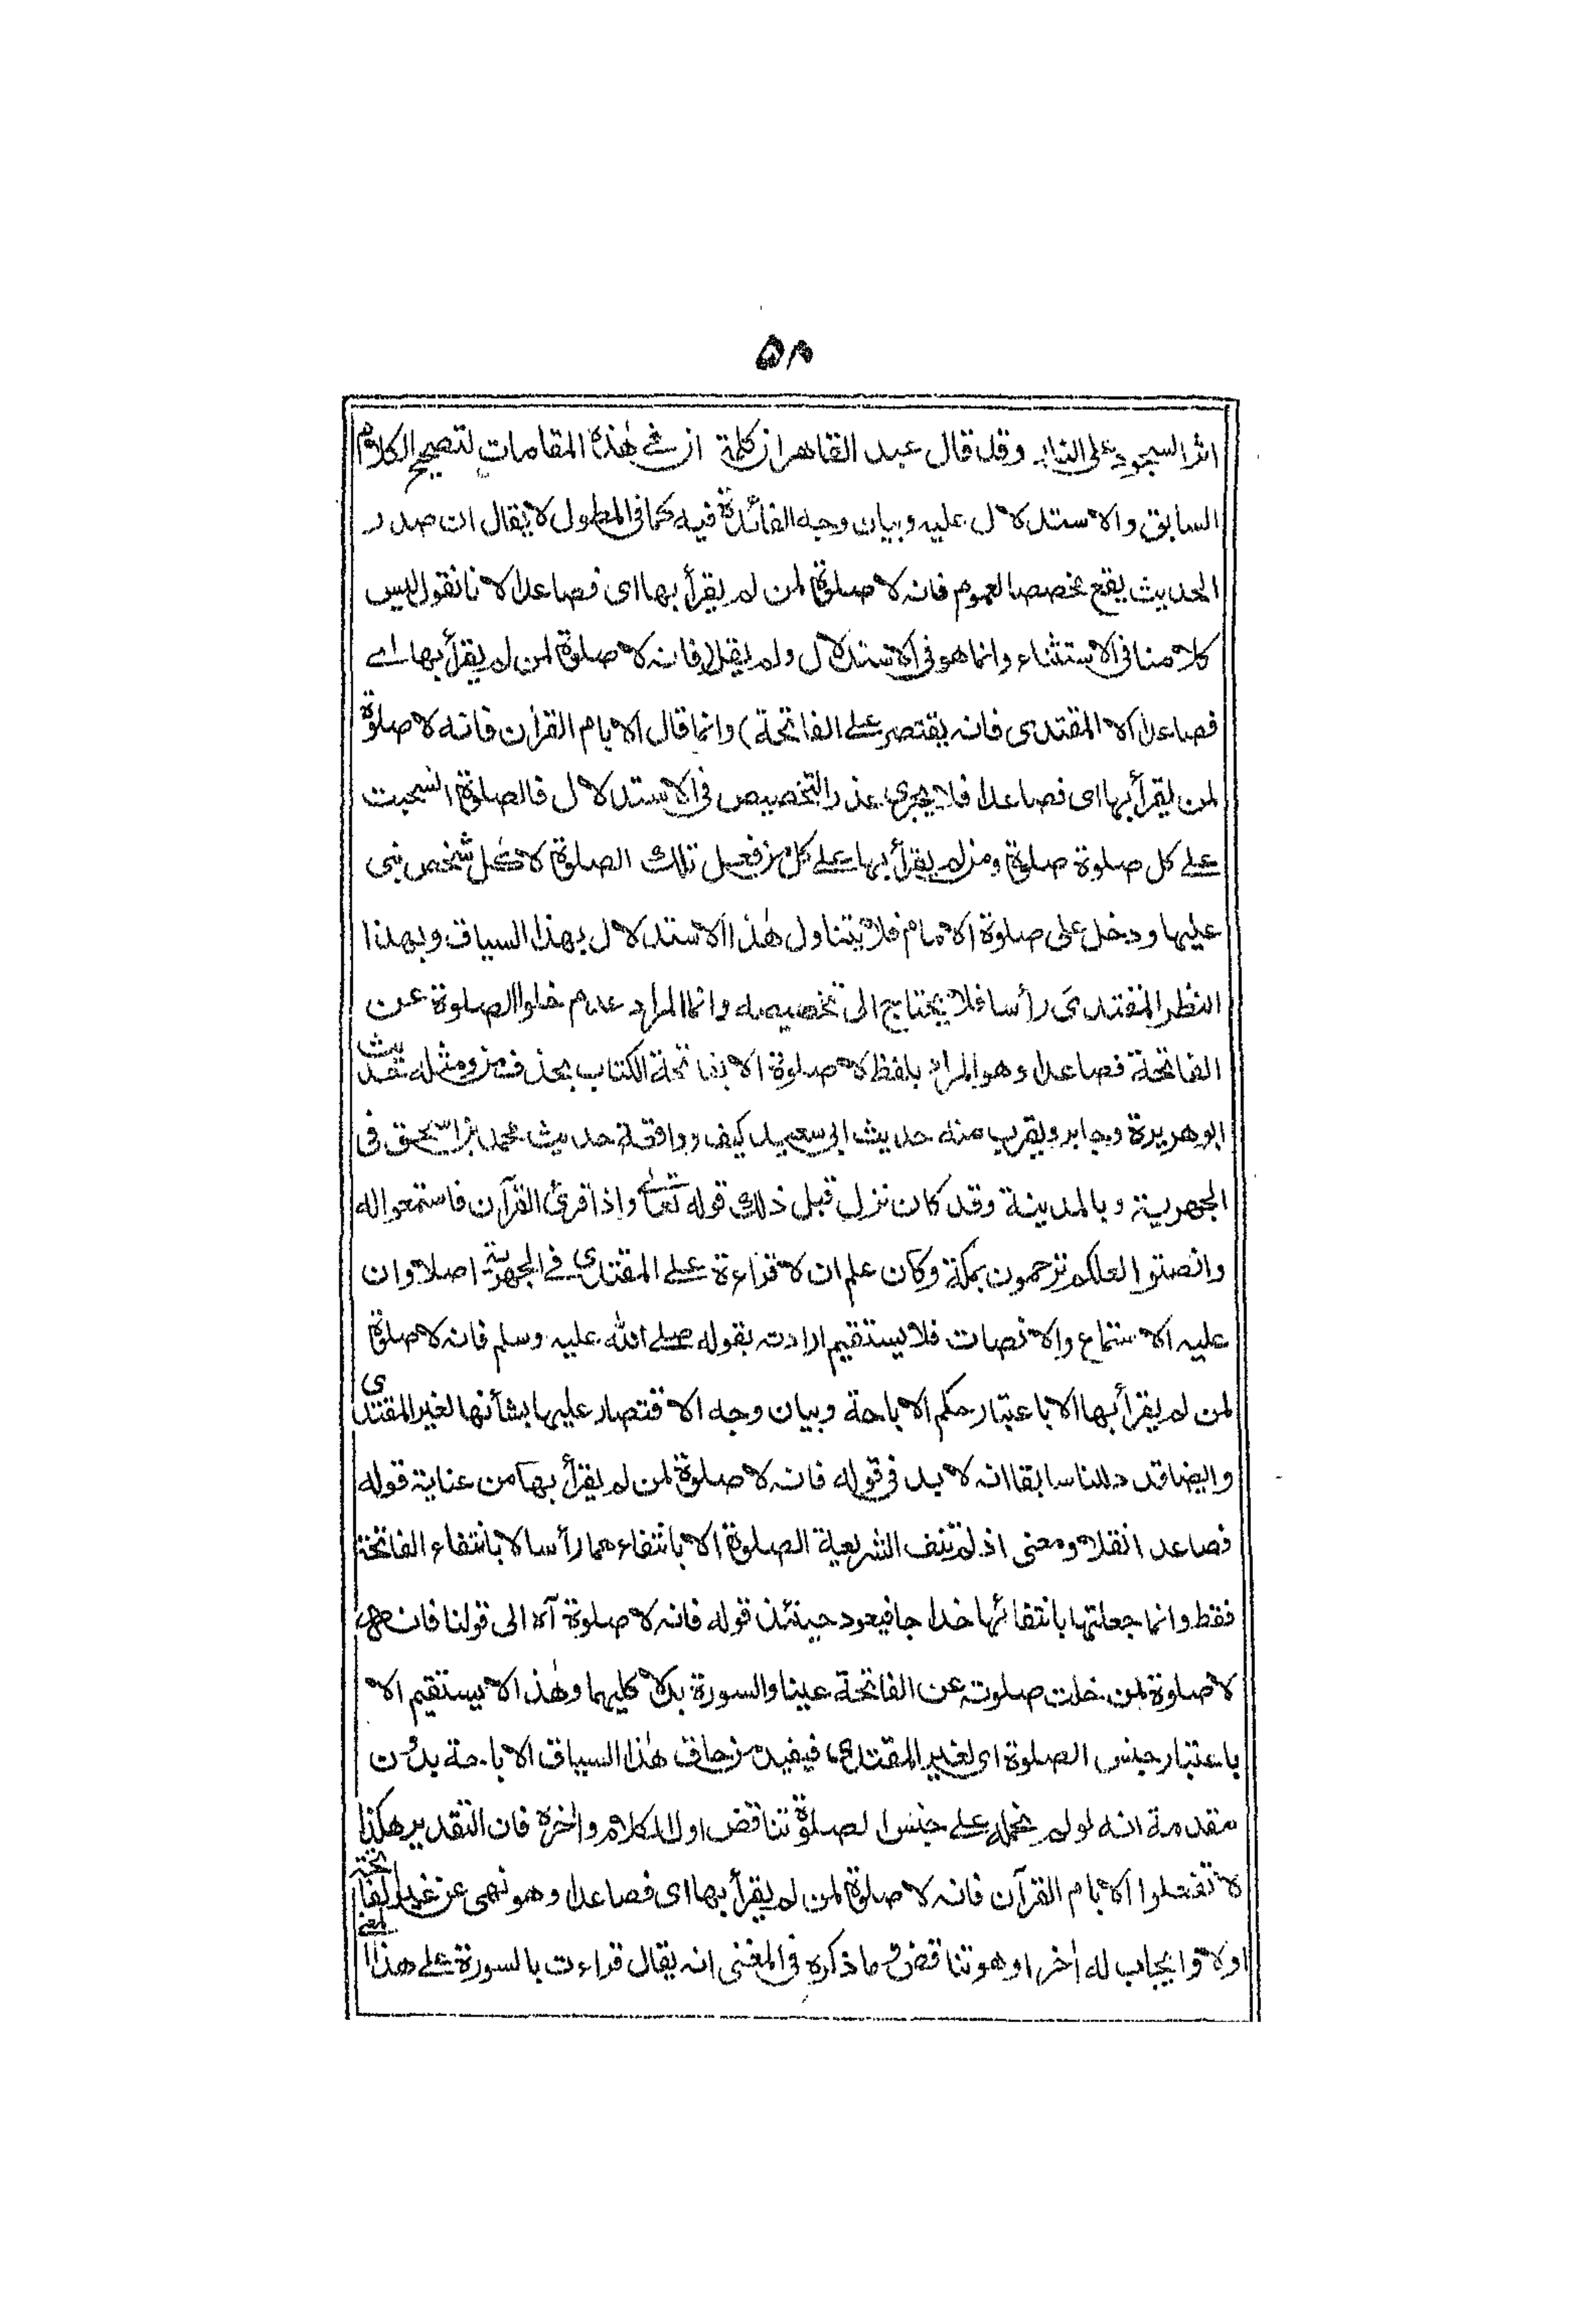 ۵۸
اثر السجود على النار وقد قال عبد القاهر ان كلمة ان في هٰذه المقامات لتصحيح الكلام
السابق والاستدلال عليه وبيان وجه الفائدة فيه كما فى المطول لا يقال ان صدر
الحديث يقع مخصصا لعموم فانه لا صلوة لمن لم يقرأ بها اى فصاعدا لانا نقول ليس
كلامنا فى الاستثناء وانما هو فى الاستدلال ولم يقل (فانه لا صلوة لمن لم يقرأ بها اے
فصاعدا الا المقتدى فانه يقتصر علے الفاتحة) وانما قال الا بام القراٰن فانه لا صلوة
لمن لم يقرأ بها اى فصاعدا فلا يجرى عذر التخصيص فى الاستدلال فالصلوة انسحبت
علے كل صلوة صلوة ومن لم يقرأ بها علے كل من فعل تلك الصلوة لا كل شخص نبى
عليها ودخل على صلوة الامام فلا يتناول هٰذا الاستدلال بهذا السياق وبهذا
النظر المقتدى رأسا فلا يحتاج الى تخصيصه وانما المراد عدم خلو الصلوة عن
الفاتحة فصاعدا وهو المراد بلفظ لا صلوة الا بفاتحة الكتاب بحذف من ومثله حديث
ابو هريرة وجابر ويقرب منه حديث ابى سعيد كيف وواقعة حديث محمد بن اسحٰق فى
الجهرية وبالمدينة وقد كان نزل قبل ذلك قوله تعالٰے واذا قرئ القرآن فاستمعوا له
وانصتوا لعلكم ترحمون بمكة وكان علم ان لا قراءة علے المقتدى فے الجهرية اصلا وان
عليه الاستماع والانصات فلا يستقيم ارادته بقوله صلے الله عليه وسلم فانه لا صلوة
لمن لم يقرأ بها الا باعتبار حكم الاباحة وبيان وجه الاقتصار عليها بشأنها لغير المقتدى
وايضا قد دللنا سابقا انه لا بد فى قوله فانه لا صلوة لمن لم يقرأ بها من عناية قوله
فصاعدا نقلا ومعنى اذ لم تنف الشريعة الصلوة الا بانتفاءهما رأسا لا بانتفاء الفاتحة
فقط وانما جعلتها بانتفائها خداجا فيعود حينئذ قوله فانه لا صلوة آه الى قولنا فانه
لا صلوة لمن خلت صلوته عن الفاتحة عينا والسورة بدلا كليهما وهٰذا لا يستقيم الا
باعتبار جنس الصلوة اى لغير المقتدى فيفيد من حاق هٰذا السياق الاباحة بدون
مقدمة انه لو لم نحمله علے جنس الصلوة تناقض اول الكلام واٰخره فان التقدير هكذا
لا تفعلوا الا بام القرآن فانه لا صلوة لمن لم يقرأ بها اى فصاعدا وهو نهى عن غير الفاتحة
اولا وايجاب له اٰخرا وهو تناقض وما ذكره فى المغنى انه يقال قراءت بالسورة علے هذا المعنے